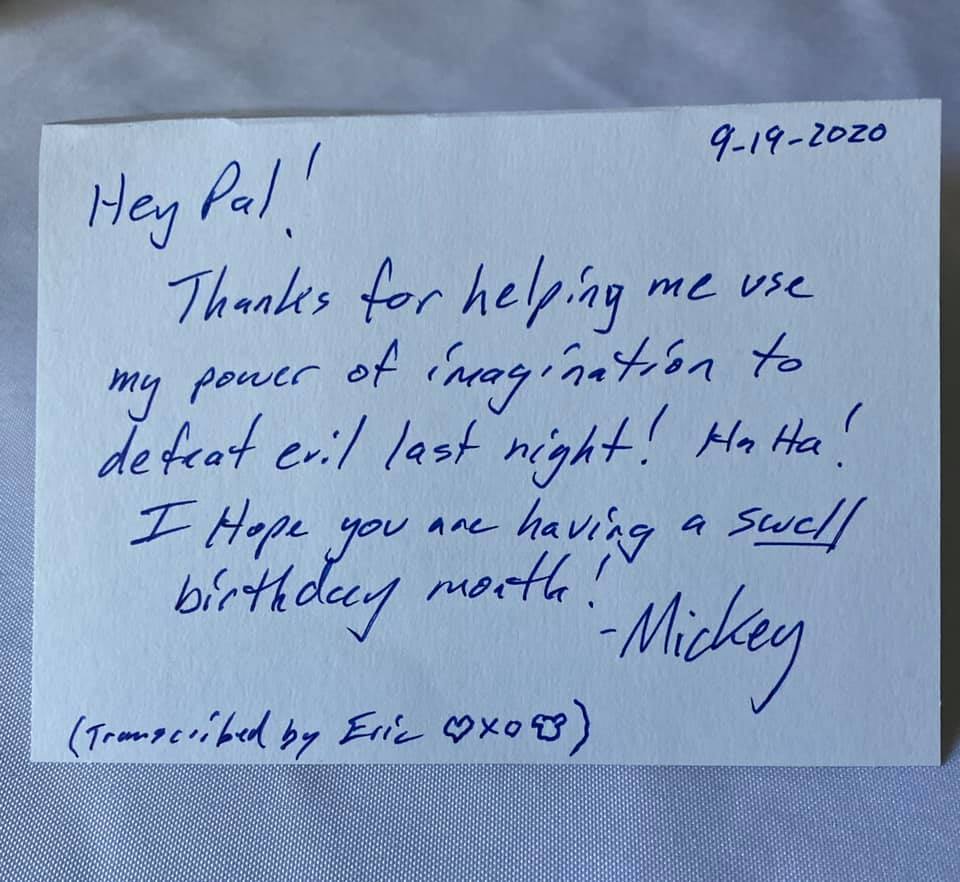 9-19-2020
Hey Pal!
Thanks for helping me use
my power of imagination to
defeat evil last night! Ha Ha!
I Hope you are having a swell
birthday month!
-Mickey
(Transcribed by Eric ♡xo)